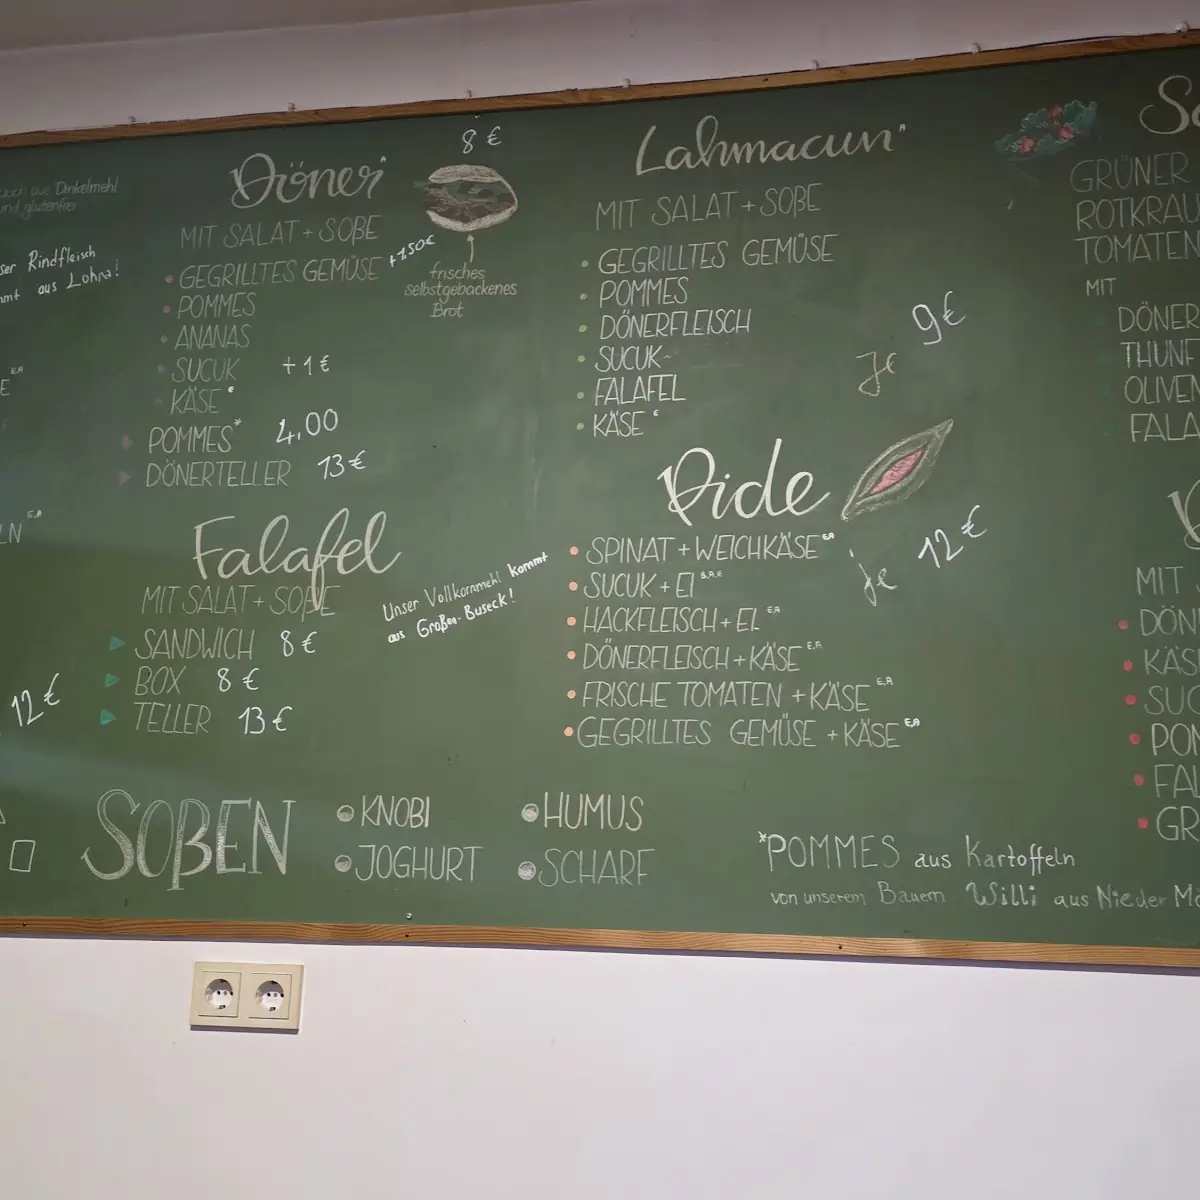 Dinkelmehl
und glutenfrei
Rindfleisch
aus Lohra!
12 €
Döner
8 €
MIT SALAT + SOẞE
GEGRILLTES GEMÜSE +1,50€
POMMES
ANANAS
SUCUK +1 €
KÄSE
POMMES* 4,00
DÖNERTELLER 13 €
frisches
selbstgebackenes
Brot
Falafel
MIT SALAT + SOẞE
SANDWICH 8 €
BOX 8 €
TELLER 13 €
Unser Vollkornmehl kommt
aus Großen-Buseck!
Lahmacun
MIT SALAT + SOẞE
GEGRILLTES GEMÜSE
POMMES
DÖNERFLEISCH
SUCUK
FALAFEL
KÄSE
Je 9€
Pide
SPINAT + WEICHKÄSE
SUCUK + EI
HACKFLEISCH + EI
DÖNERFLEISCH + KÄSE
FRISCHE TOMATEN + KÄSE
GEGRILLTES GEMÜSE + KÄSE
je 12 €
GRÜNER
TOMATEN
MIT
DÖNER
OLIVEN
MIT
SOẞEN
KNOBI
JOGHURT
HUMUS
SCHARF
*POMMES aus Kartoffeln
von unserem Bauern Willi aus Nieder